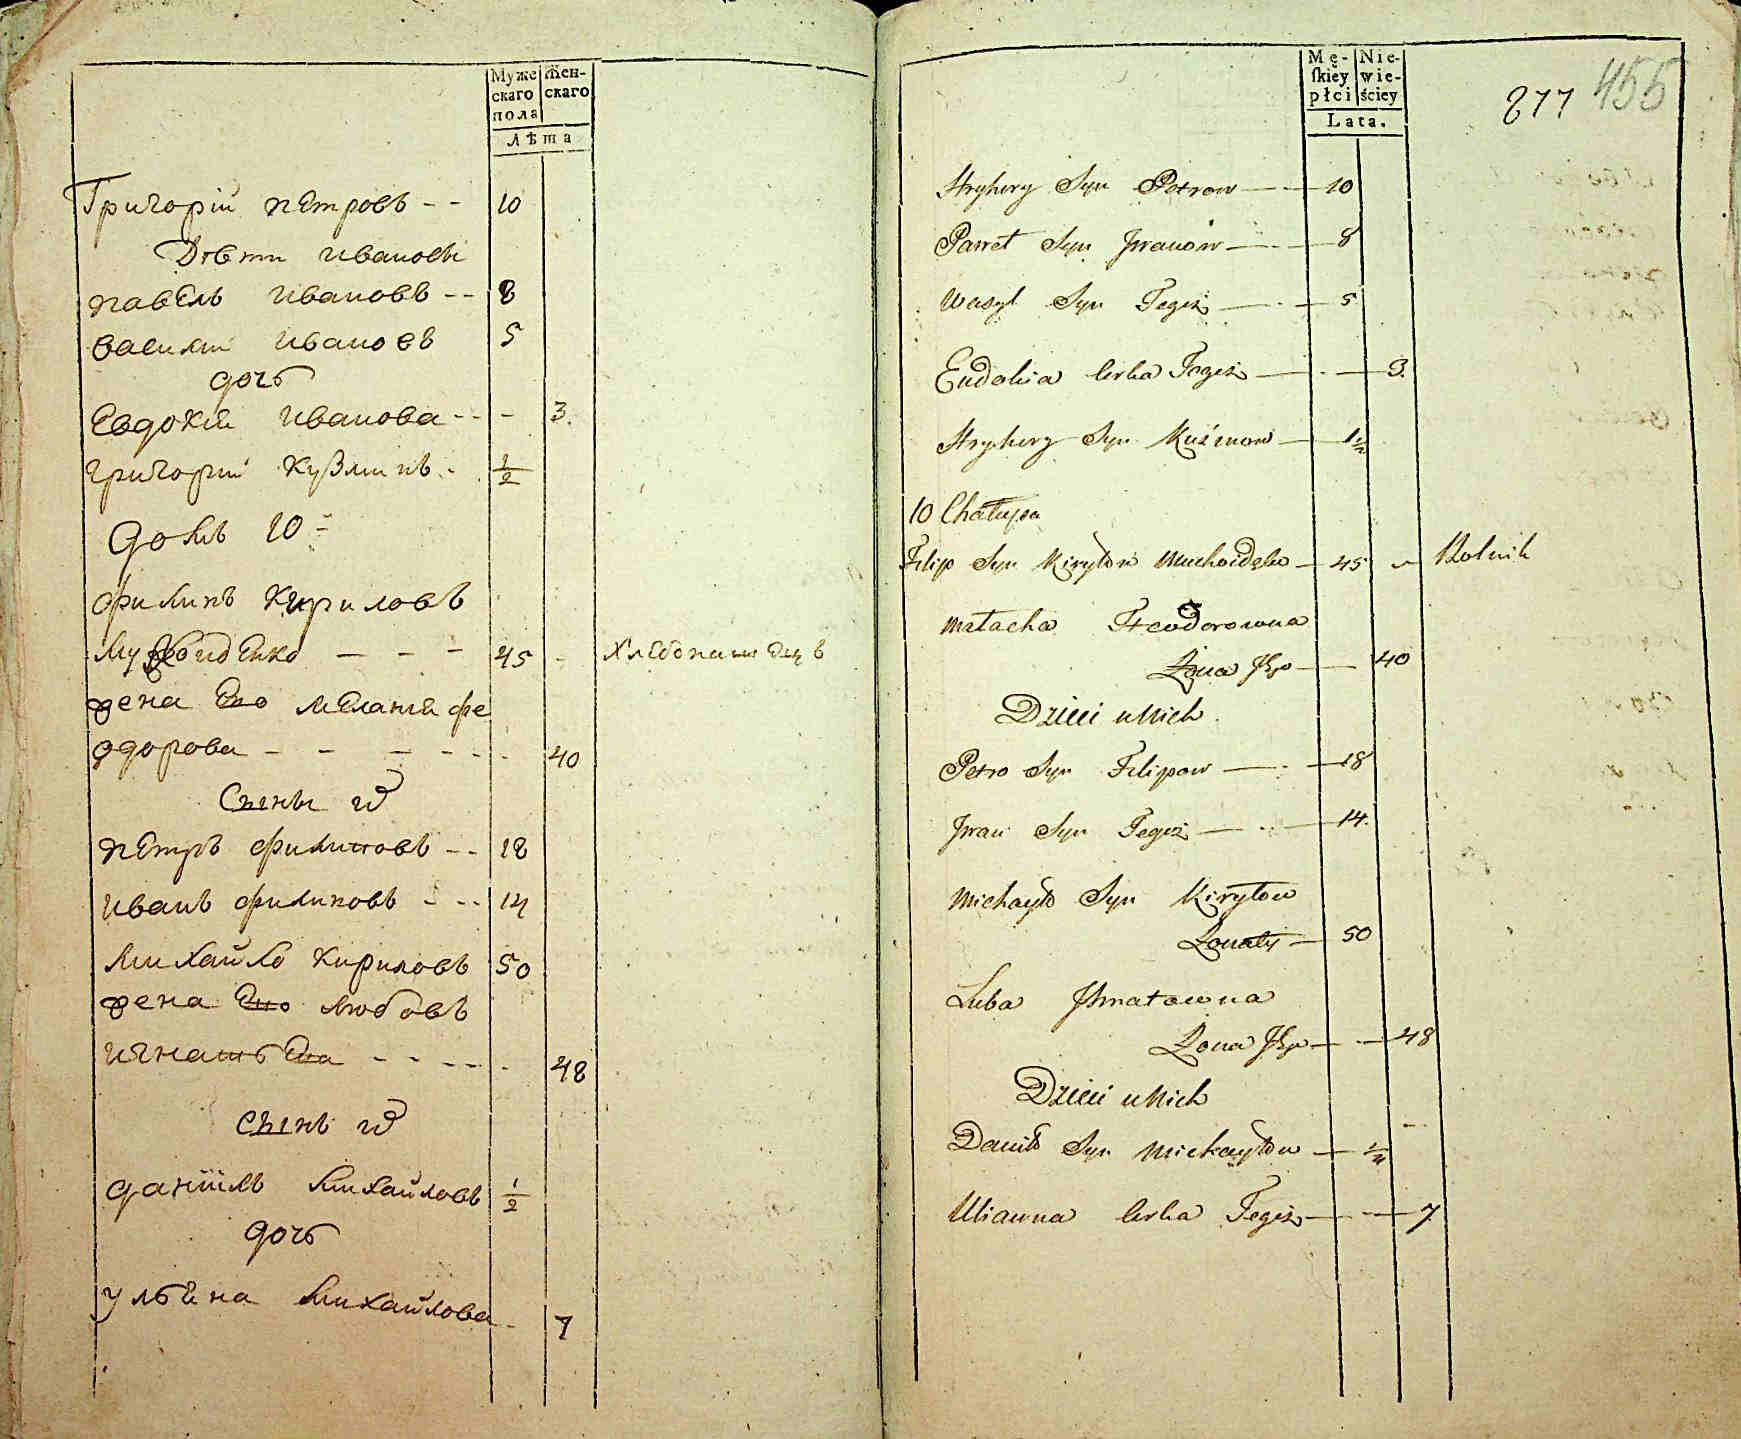 Муже
скаго
пола
Жен-
скаго
Лѣта
Григорій Петровъ - - 10
Дѣти Ивановы
Павелъ Ивановъ - - 8
Василій Ивановъ 5
дочь
Евдокія Иванова - - - 3.
Григорій Кузминъ - 1/2
Домъ 10
Филипъ Кириловъ
45 - хлебопашецъ
жена Ево Меланія Фе
одорова - - - - - - 40
Сыны
Петръ Филиповъ - - 18
Иванъ Филиповъ - - - 14
Михайло Кириловъ 50
жена Ево Любовъ
Игнатьева - - - - - 48
Сынъ
Даніилъ Михайловъ 1/2
дочь
Ульяна Михайлова - 7
Mę-
skiey
płci
Nie-
wie-
ściey
Lata.
277 455
Hryhory Syn Petrow — 10
Paweł Syn Jwanow — 8
Wasyl Syn Tegoż — 5
Eudokia Corka Tegoż — 3.
Hryhory Syn Kuźmow — 1/2
10 Chałupa
Filip Syn Kiryłow — 45 Rolnik
Małacha Fteodorowna
Żona Jego — 40
Dzieci u Nich
Petro Syn Filipow — 18
Jwan Syn Tegoż — 14.
Michayło Syn Kiryłow
Żonaty — 50
Luba Jhnatowna
Żona Jego — 48
Dzieci u Nich
Daniło Syn Michayłow — 1/2
Ulianna Corka Tegoż — 7